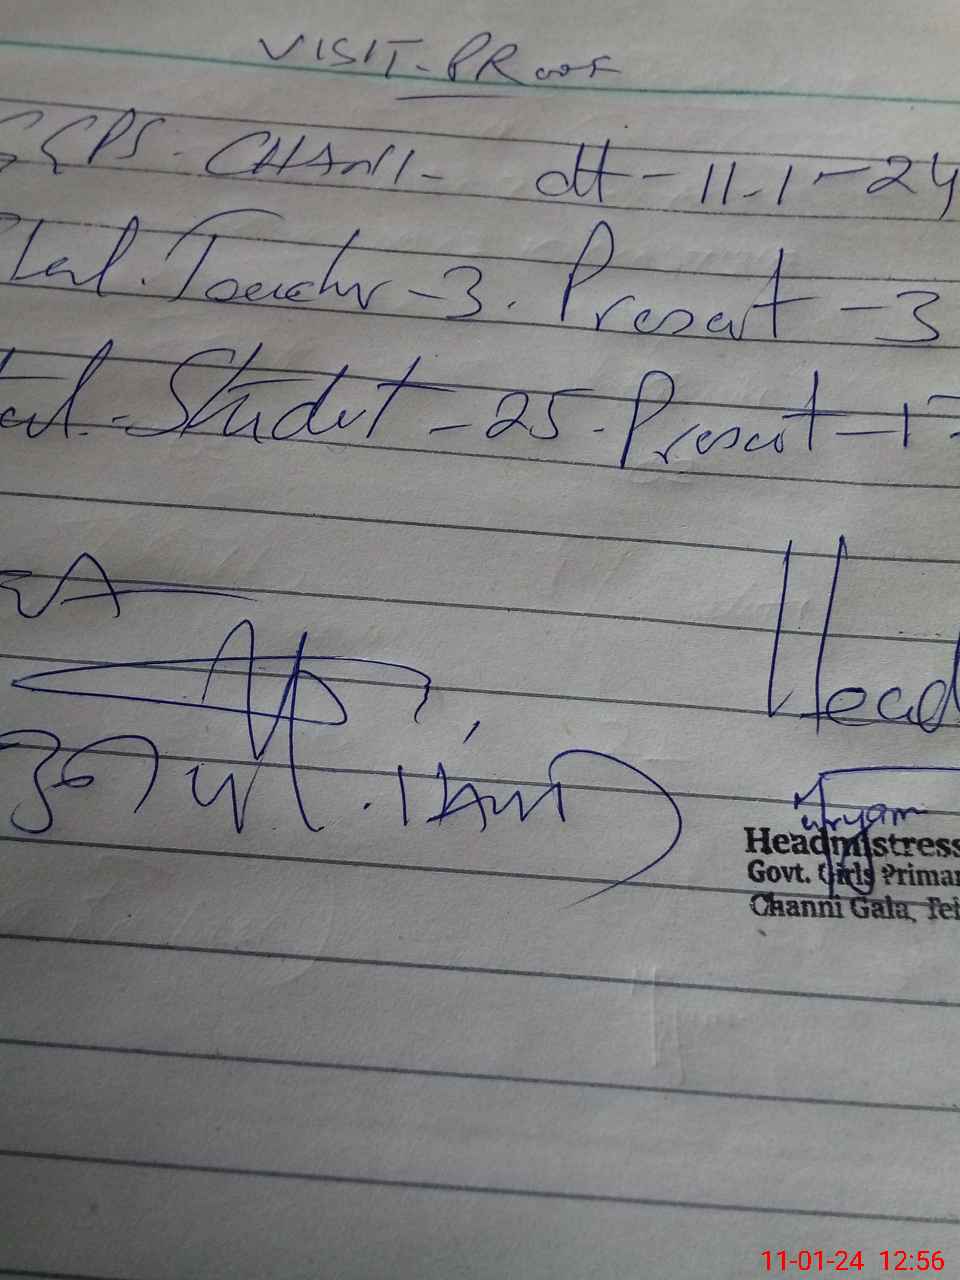 VISIT-PROOF
GGPS. CHANNI- dt-11-1-24
Total. Teacher-3. Present-3
Total.-Student-25. Present-17
Head
Headmistress
Govt. Girls Primar
Channi Gala, Teh
11-01-24 12:56